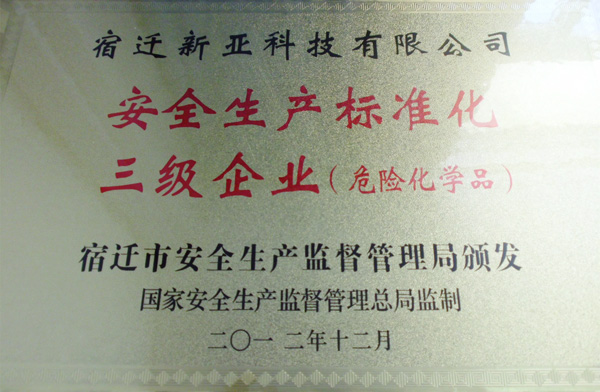 宿迁新亚科技有限公司
安全生产标准化
三级企业(危险化学品)
宿迁市安全生产监督管理局颁发
国家安全生产监督管理总局监制
二〇一二年十二月